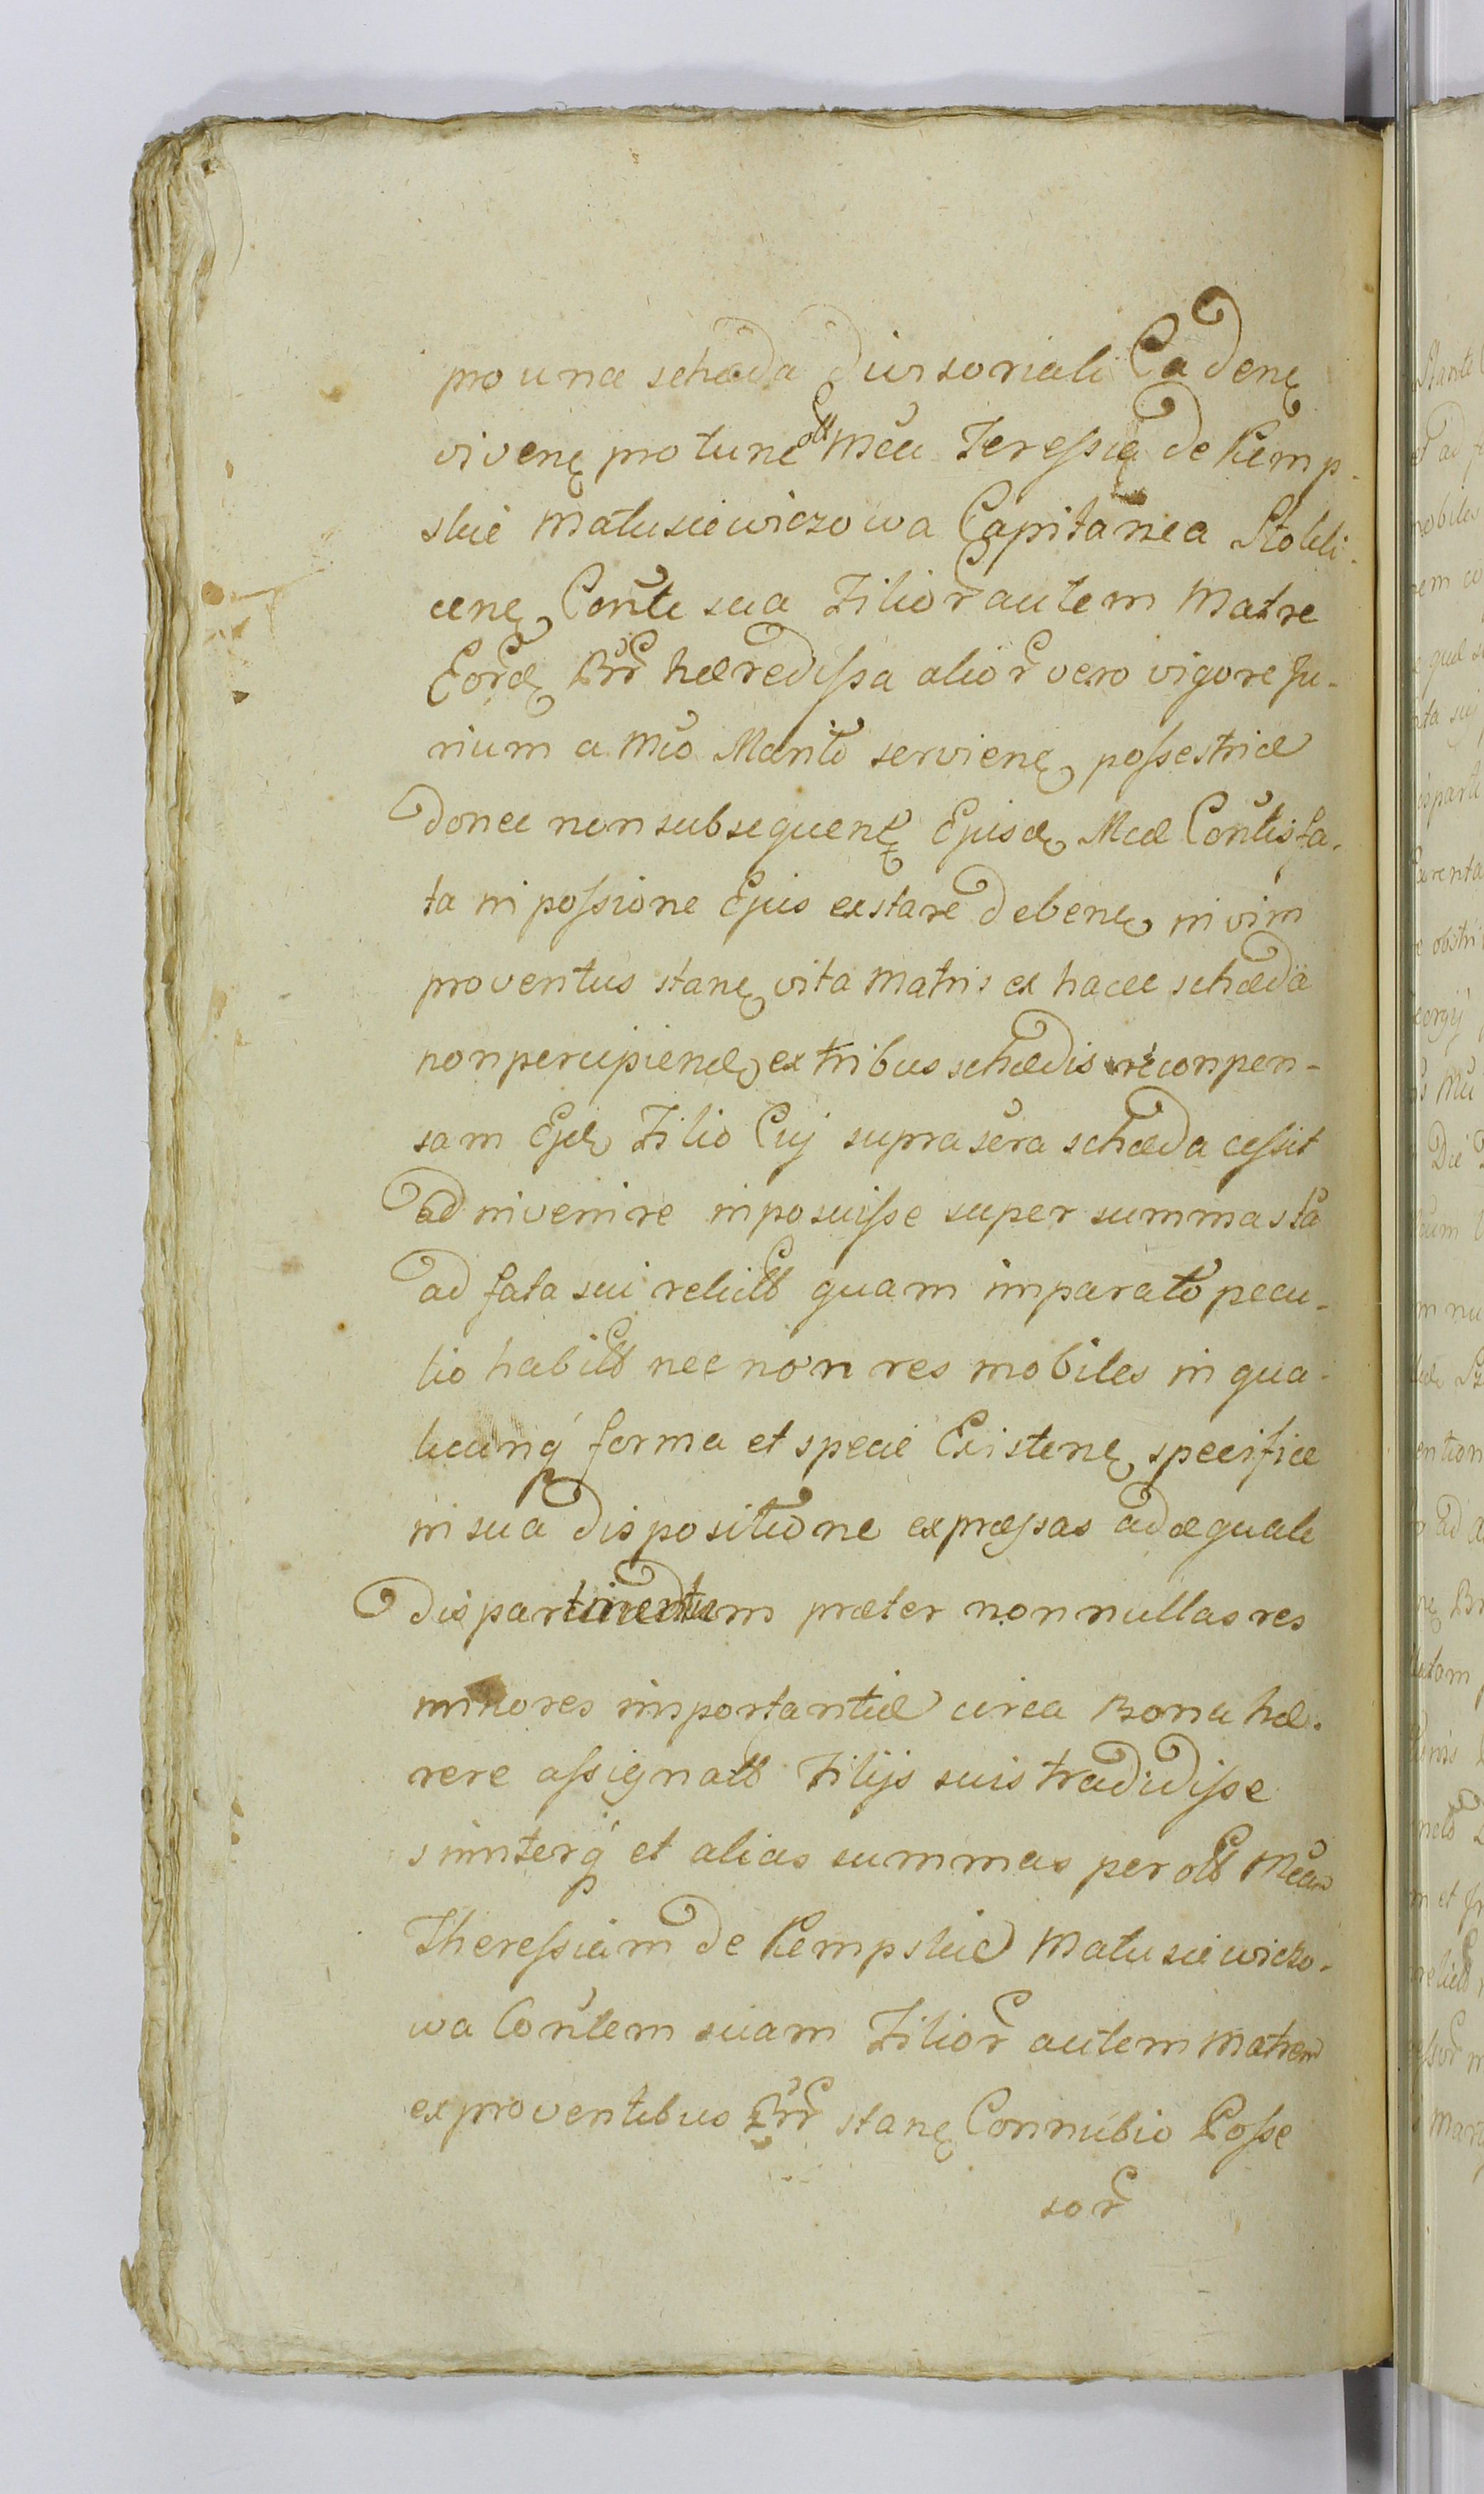 pro una schæda diviſoriali Caden
viven pro tunc olt Mcā Tereſsia de Kemp-
skie Matusiewiczowa Capitanea Stokli-
cen Conte sua Filior autem Matre
Eord Brr hæredißa alior vero vigore Ju-
rium a Mco Marito servien poßestrice
donec non subsequen Ejusd Mcæ Contis fa-
ta in poßione Ejus exstare deben in vim
proventus stan vita Matris ex hacce schæda
non percipiend ex tribus schædis reconpen-
sam Ejd Filio Cuj supra sera schæda ceßit
adinvenire inposuiße super summas ta
ad fata sui relictt quam imparato pecu-
lio habitt nec non res mobiles in qua-
licunq forma et specie Existen specifice
in sua dispositione expræßas adæquale
dispar præter nonnullas res
minores importantiæ circa Bona hæ-
rere aßignatt Filijs suis tradidiße
simterq et alias summas per olt Mcam
Thereßiam de Kempskie Matusiewiczo-
wa Contem suam Filior autem Matrem
ex proventibus Brr stan Connubio Poße
sor